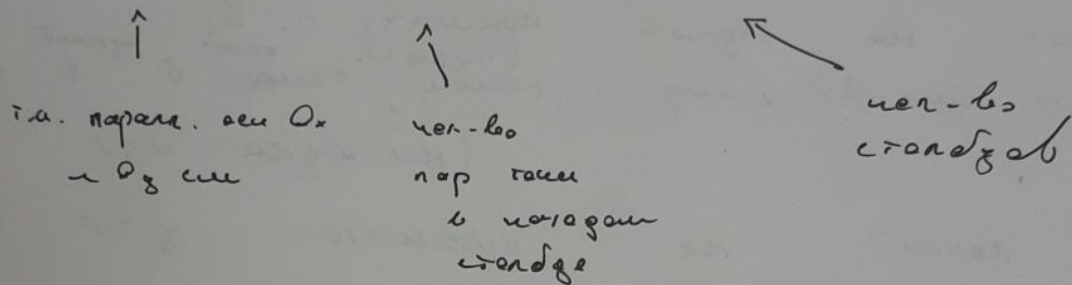 т.к. парал. оси Ox
и Oy см
кол-во
пар точек
в каждом
столбце
кол-во
столбцов